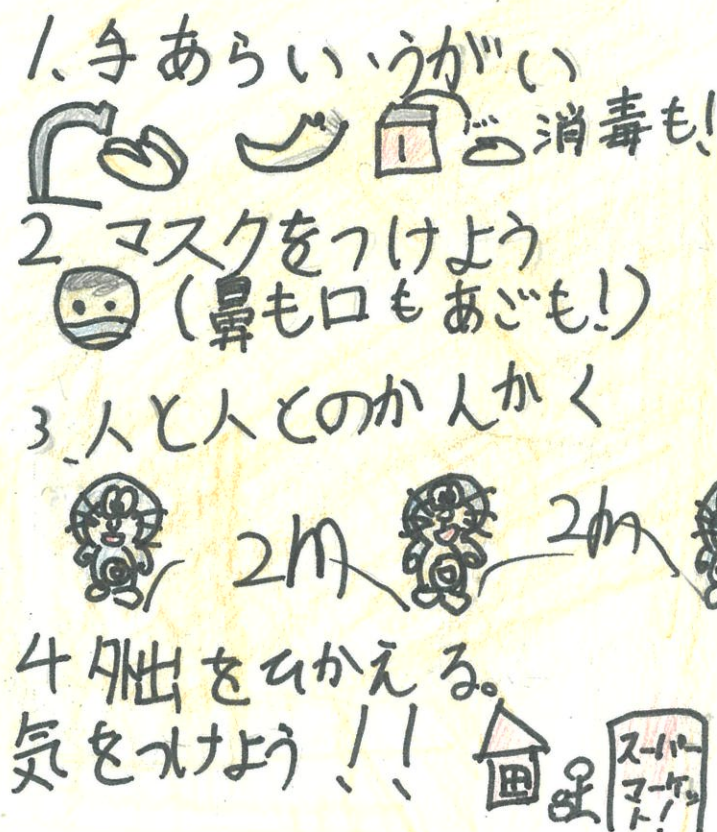 1、手あらい、うがい
消毒も!
2 マスクをつけよう
(鼻も口もあごも!)
3、人と人とのかんかく
2m 2m
4 外出をひかえる。
気をつけよう!!
スーパー
マーケッ
ト!